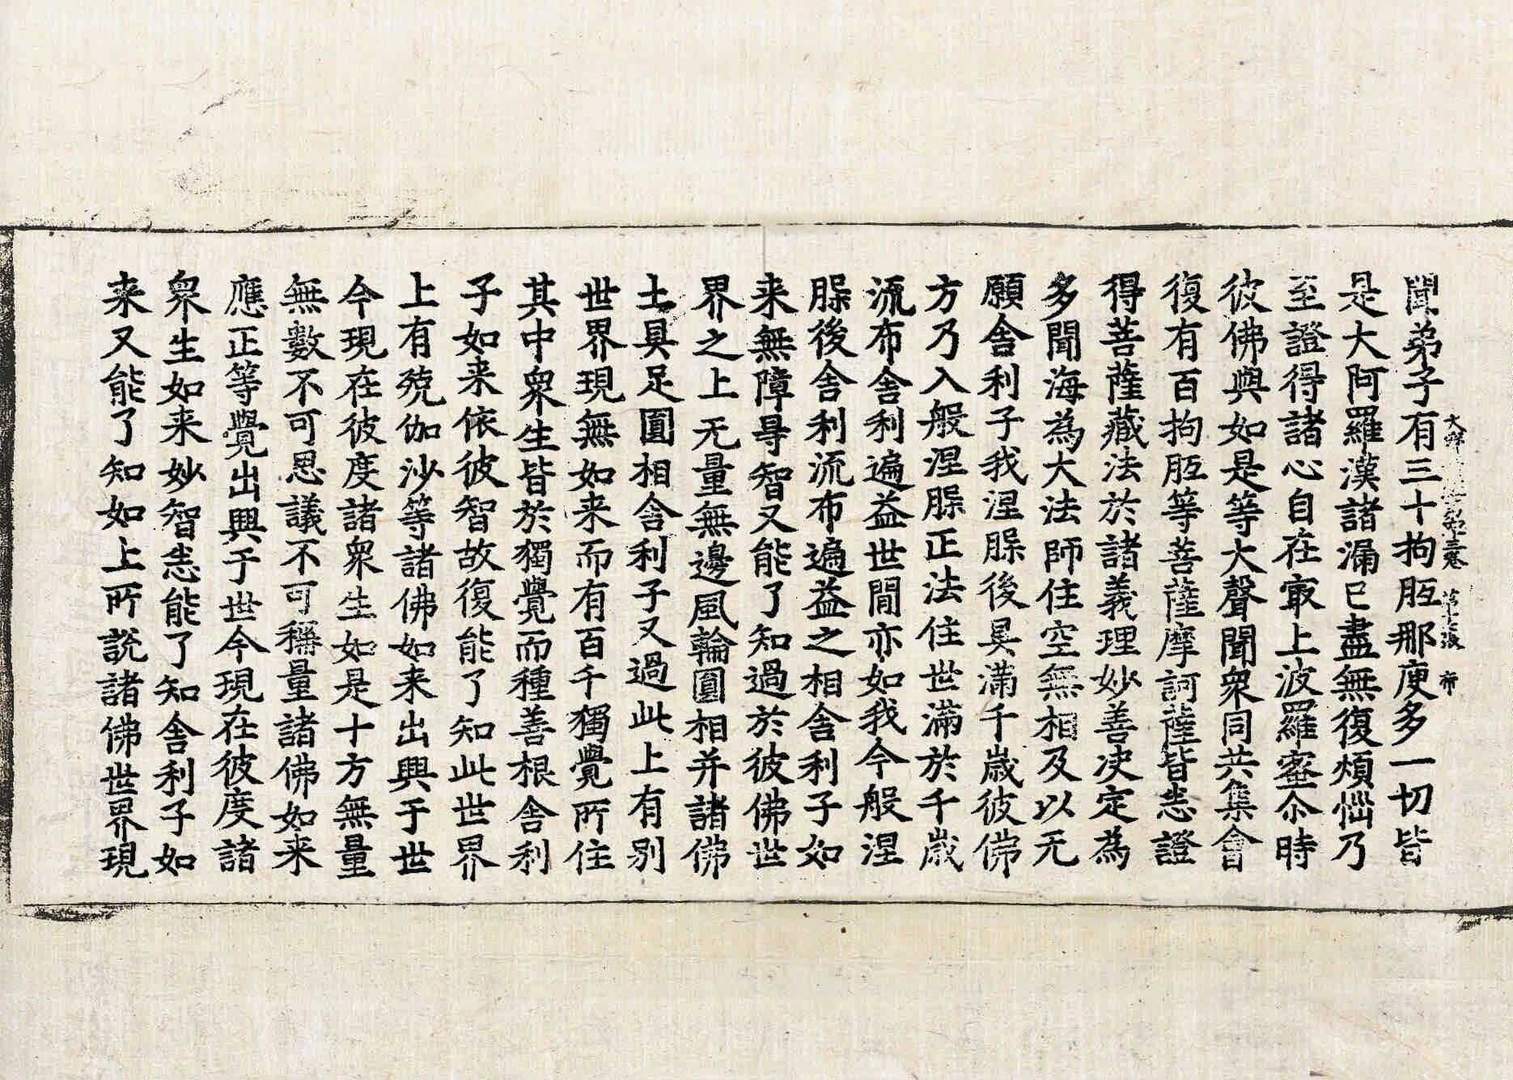 聞弟子有三十拘胝那庾多一切皆
是大阿羅漢諸漏已盡無復煩惱乃
至證得諸心自在冣上波羅蜜尒時
彼佛與如是等大聲聞衆同共集會
復有百拘胝等菩薩摩訶薩皆悉證
得菩薩藏法於諸義理妙善决定為
多聞海為大法師住空無相及以无
願舍利子我涅槃後具滿千歲彼佛
方乃入般涅槃正法住世滿於千歲
流布舍利遍益世間亦如我今般涅
槃後舍利流布遍益之相舍利子如
来無障㝵智又能了知過於彼佛世
界之上无量無邊風輪圓相并諸佛
土具足圓相舍利子又過此上有別
世界現無如来而有百千獨覺所住
其中衆生皆於獨覺而種善根舍利
子如来依彼智故復能了知此世界
上有殑伽沙等諸佛如来出興于世
今現在彼度諸衆生如是十方無量
無數不可思議不可稱量諸佛如来
應正等覺出興于世今現在彼度諸
衆生如来妙智悉能了知舍利子如
来又能了知如上所說諸佛世界現